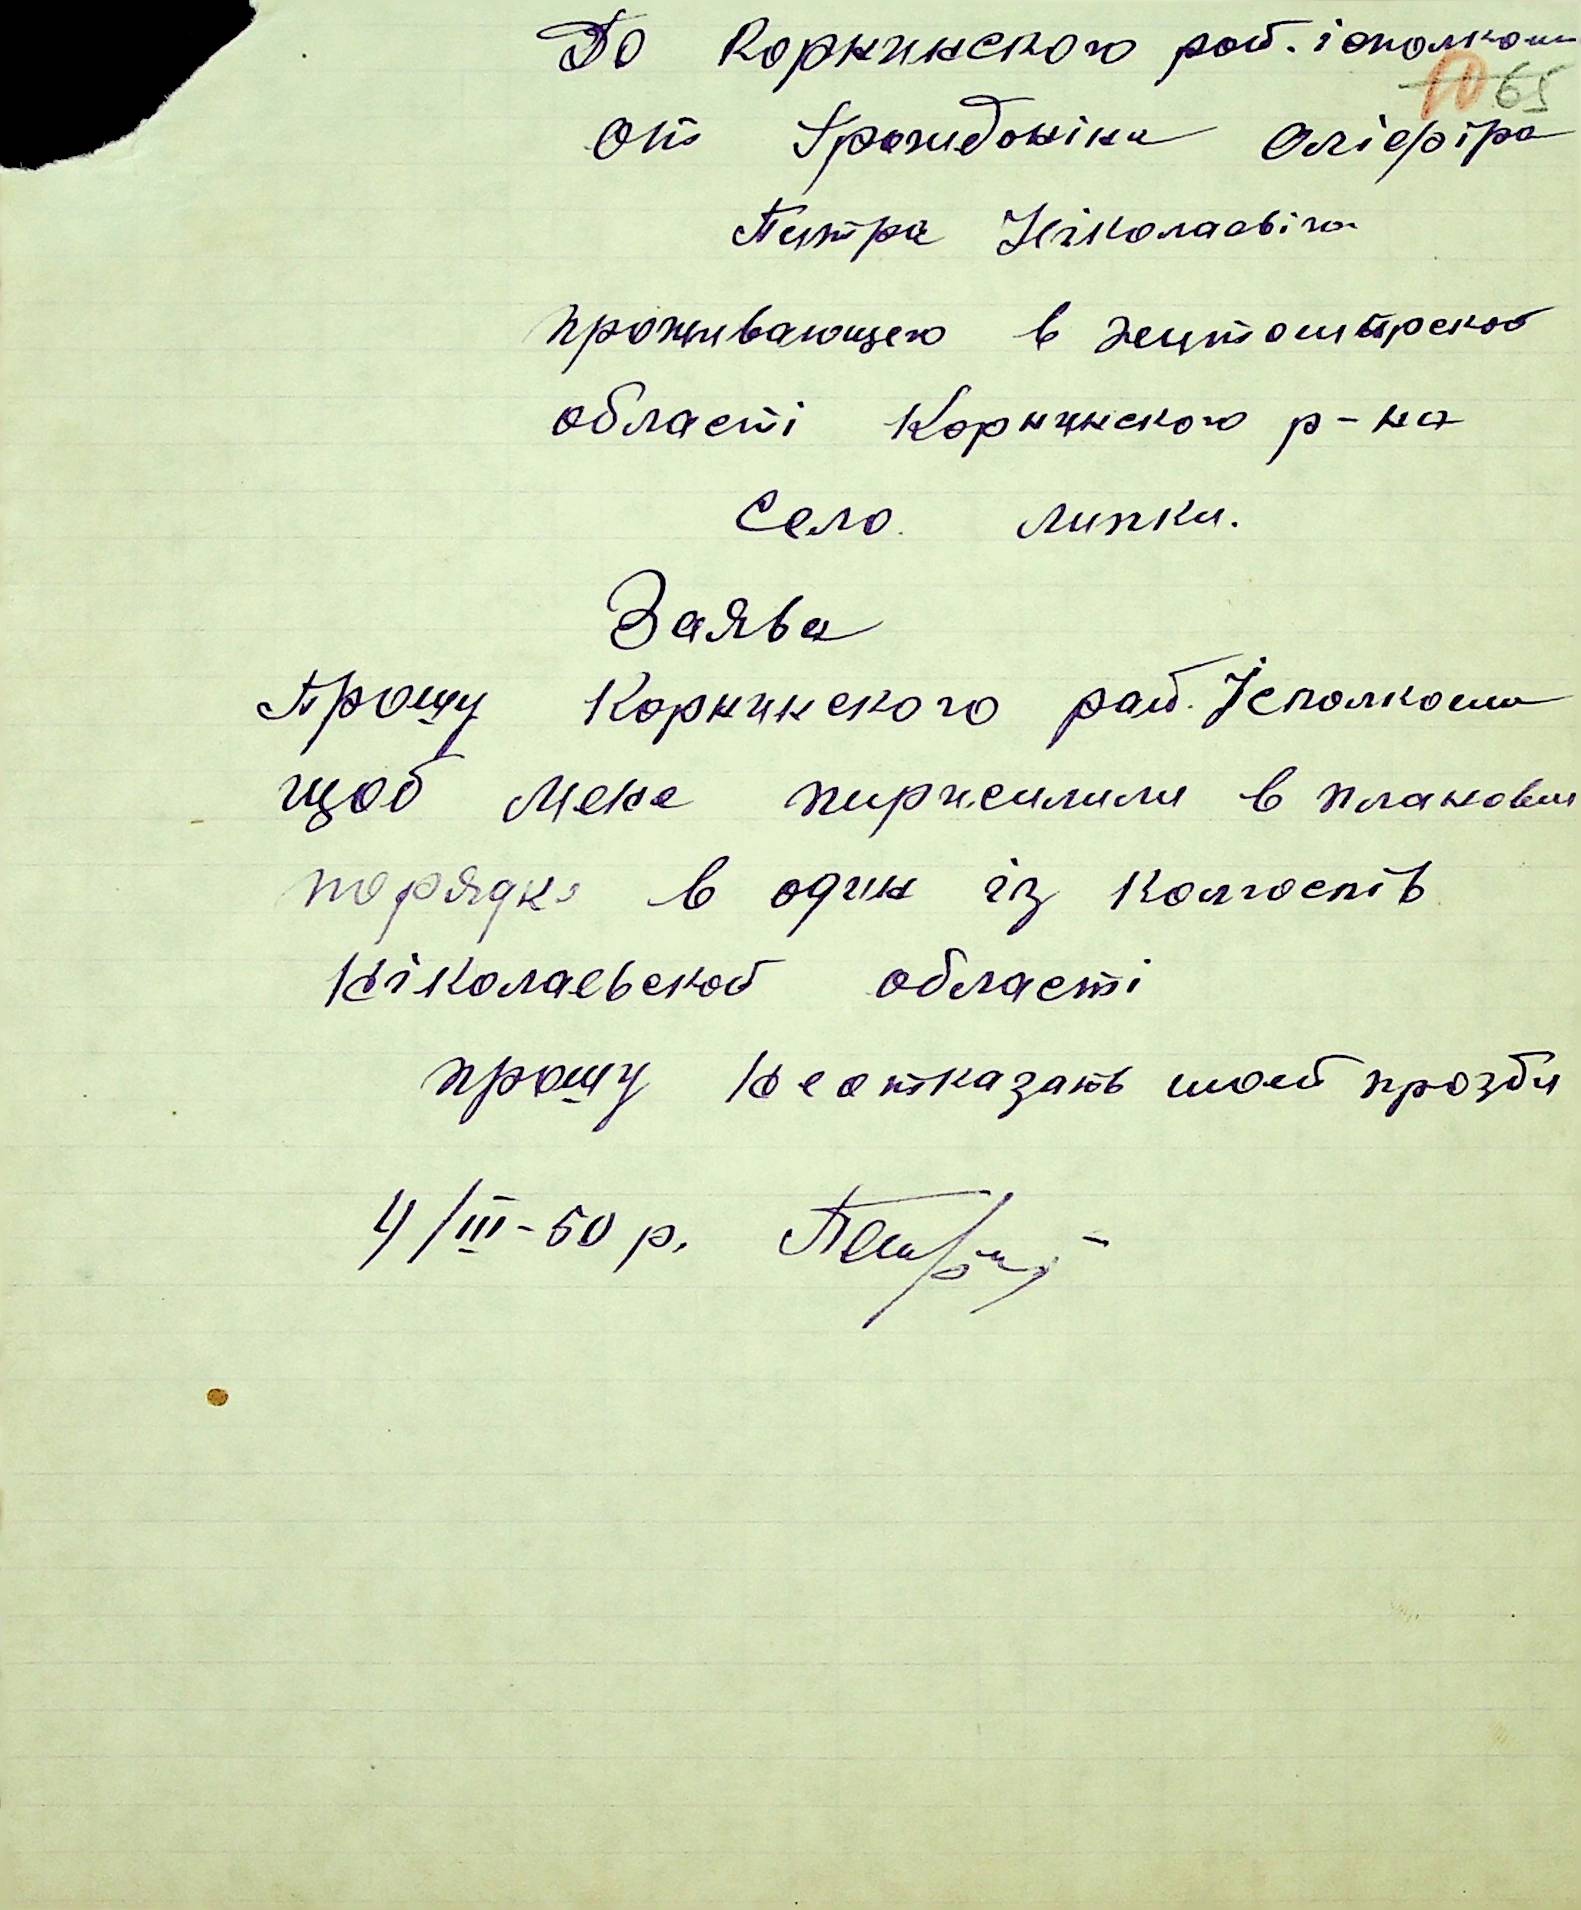 До Корнинского рай. ісполкома
65
от Гражданіна Оліфіра
Питра Ніколаевіча
проживающего в житомирской
області Корнинского р-на
Село Липки.
Заява
Прошу Корнинского рай. Ісполкома
щоб мене пирисилили в плановим
порядке в один із колгоспів
Ніколаевской області
прошу Неотказать моей прозби
4/III-50 р.